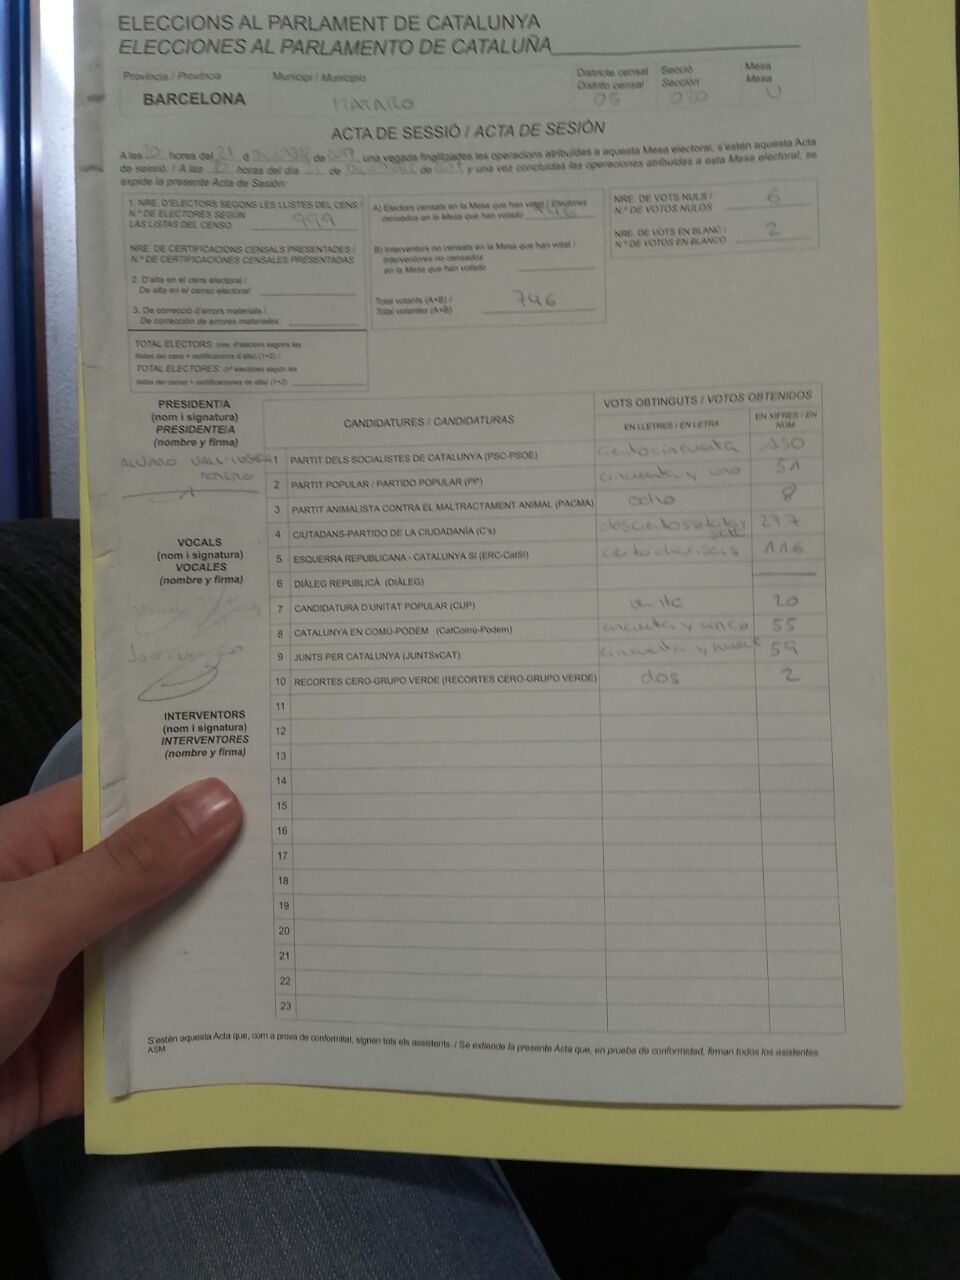 ELECCIONS AL PARLAMENT DE CATALUNYA
ELECCIONES AL PARLAMENTO DE CATALUÑA
Província / Provincia
Municipi / Municipio
Districte censal
Distrito censal
Secció
Sección
Mesa
Mesa
BARCELONA
MATARO
05
020
U
ACTA DE SESSIÓ / ACTA DE SESIÓN
A les 20 hores del 21 d de 2017 una vegada finalitzades les operacions atribuïdes a aquesta Mesa electoral, s'estén aquesta Acta
de sessió: / A las hores del día de de y una vez concluidas las operaciones atribuidas a esta Mesa electoral, se
expide la presente Acta de Sesión:
1. NRE. D'ELECTORS SEGONS LES LLISTES DEL CENS /
N.º DE ELECTORES SEGÚN
LAS LISTAS DEL CENSO 999
NRE. DE CERTIFICACIONS CENSALS PRESENTADES /
N.º DE CERTIFICACIONES CENSALES PRESENTADAS
2. D'alta en el cens electoral /
De alta en el censo electoral:
3. De correcció d'errors materials /
De corrección de errores materiales:
TOTAL ELECTORS: (nre. d'electors segons les
llistes del cens + certificacions d'alta) (1+2) /
TOTAL ELECTORES: (nº electores según las
listas del censo + certificaciones de alta) (1+2)
A) Electors censats en la Mesa que han votat / Electores
censados en la Mesa que han votado 746
B) Interventors no censats en la Mesa que han votat /
Interventores no censados
en la Mesa que han votado
Total votants (A+B) /
Total votantes (A+B) 746
NRE. DE VOTS NULS /
N.º DE VOTOS NULOS 6
NRE. DE VOTS EN BLANC /
N.º DE VOTOS EN BLANCO 2
PRESIDENT/A
(nom i signatura)
PRESIDENTE/A
(nombre y firma)
ALVARO
VOCALS
(nom i signatura)
VOCALES
(nombre y firma)
INTERVENTORS
(nom i signatura)
INTERVENTORES
(nombre y firma)
CANDIDATURES / CANDIDATURAS
VOTS OBTINGUTS / VOTOS OBTENIDOS
EN LLETRES / EN LETRA
EN XIFRES / EN
NÚM
1 PARTIT DELS SOCIALISTES DE CATALUNYA (PSC-PSOE) ciento cincuenta 150
2 PARTIT POPULAR / PARTIDO POPULAR (PP) cincuenta y uno 51
3 PARTIT ANIMALISTA CONTRA EL MALTRACTAMENT ANIMAL (PACMA) ocho 8
4 CIUTADANS-PARTIDO DE LA CIUDADANÍA (C's) 277
5 ESQUERRA REPUBLICANA - CATALUNYA SÍ (ERC-CatSí) ciento dieciseis 116
6 DIÀLEG REPUBLICÀ (DIÀLEG)
7 CANDIDATURA D'UNITAT POPULAR (CUP) veinte 20
8 CATALUNYA EN COMÚ-PODEM (CatComú-Podem) cincuenta y cinco 55
9 JUNTS PER CATALUNYA (JUNTSxCAT) cincuenta y nueve 59
10 RECORTES CERO-GRUPO VERDE (RECORTES CERO-GRUPO VERDE) dos 2
11
12
13
14
15
16
17
18
19
20
21
22
23
S'estén aquesta Acta que, com a prova de conformitat, signen tots els assistents. / Se extiende la presente Acta que, en prueba de conformidad, firman todos los asistentes.
ASM